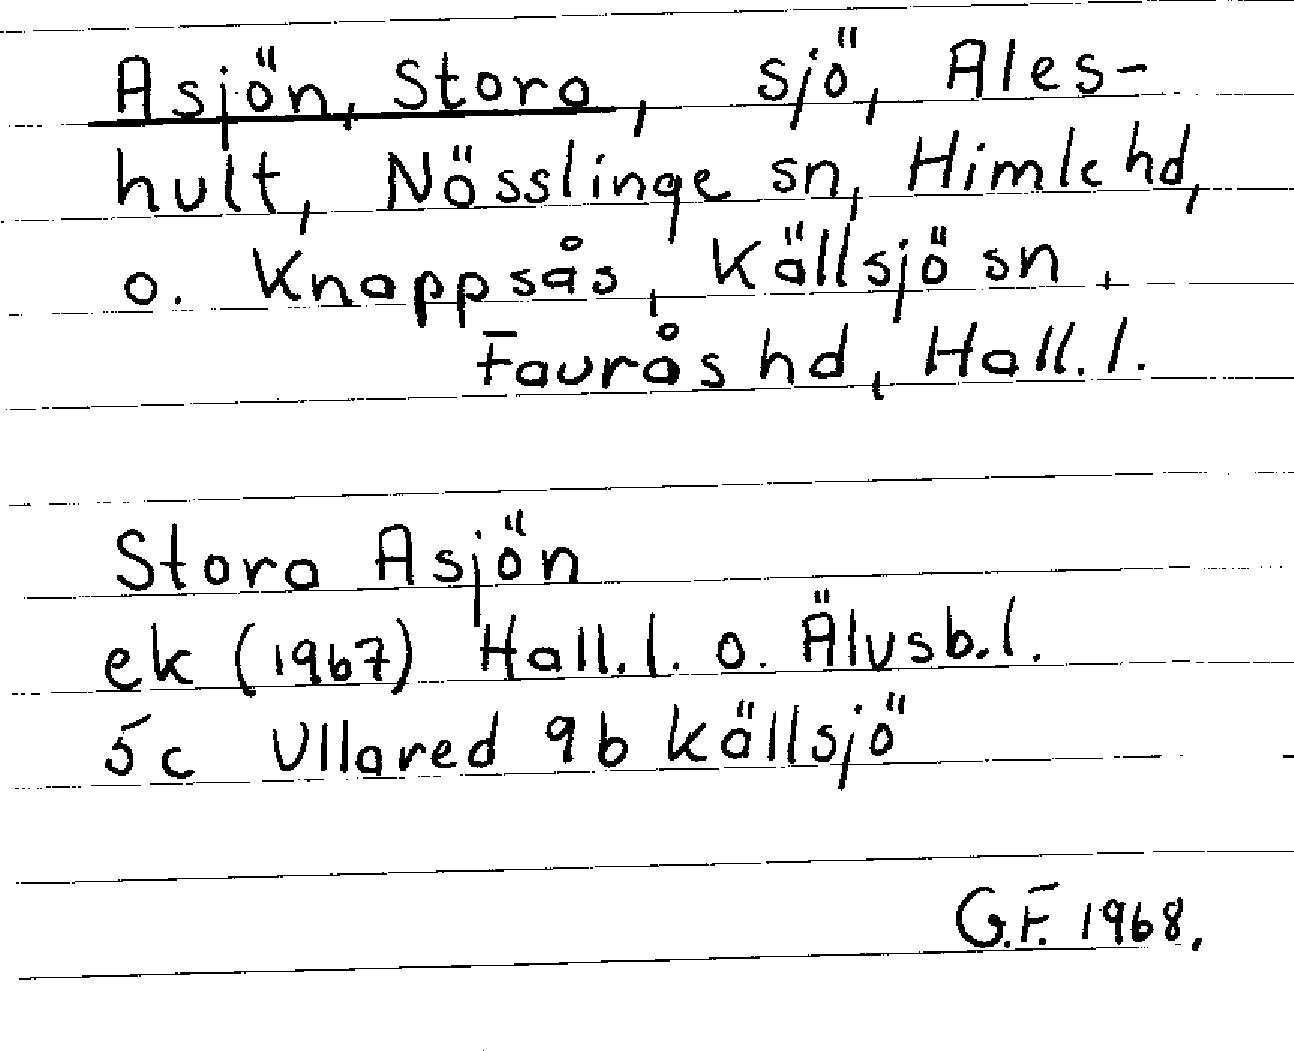 Asjön, Stora, sjö, Ales-
hult, Nösslinge sn, Himle hd,
o. Knappsås, Källsjö sn,
Faurås hd, Hall. l.
Stora Asjön
ek (1967) Hall. l. o. Älvsb. l.
5c Ullared 9b Källsjö
G.F. 1968.